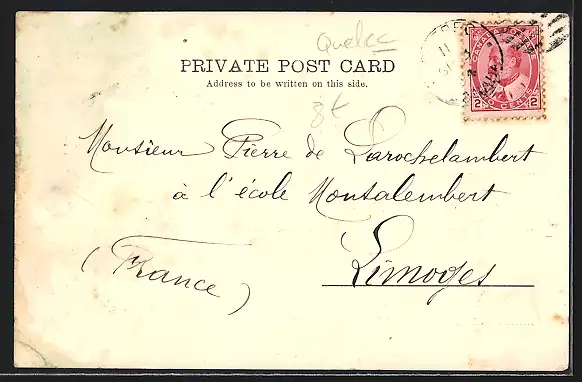 Quebec
PRIVATE POST CARD
Address to be written on this side.
8€
Monsieur Pierre de Larochelambert
à l'école Montalembert
Limoges
(France)
CANADA POSTAGE
2 CENTS 2